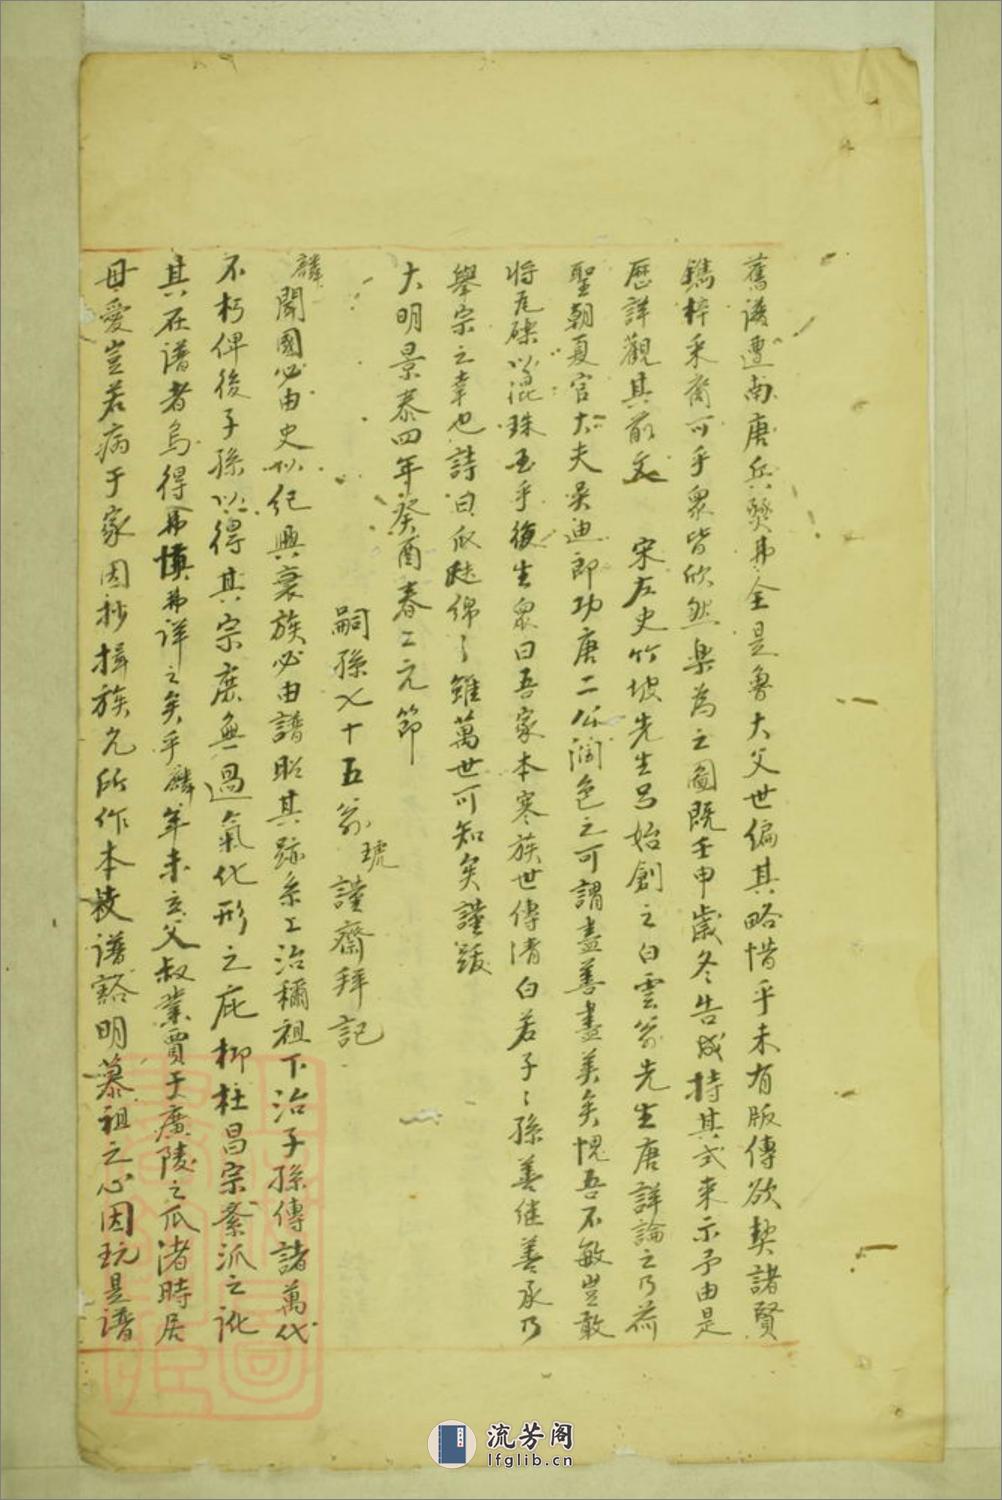 舊譜遭南唐兵燹弗全是魯大父世編其略惜乎未有版傳欲契諸賢
鐫梓采裔可乎眾皆欣然樂為之圖既壬申歲冬告成持其式來示予由是
歷詳觀其前文 宋左史竹坡先生呂始創之白雲翁先生唐詳論之乃荷
聖朝夏官大夫吳迪郎功唐二公潤色之可謂盡善盡美矣愧吾不敏豈敢
將瓦礫以混珠玉乎復生眾曰吾家本寒族世傳清白若子〻孫善继善承乃
舉宗之幸也詩曰瓜瓞綿〻雖萬世可知矣謹跋
大明景泰四年癸酉春上元節
嗣孫七十五翁琥謹齋拜記
麟聞國必由史以紀興衰族必由譜昭其跡系上治禰祖下治子孫傳諸萬代
不朽俾後子孫以得其宗庶無過氣化形之庇柳杜昌宗紊派之訛
其在谱者烏得弗慎弗详之矣乎麟年未立父叔業賈于廣陵之瓜渚時居
母愛豈若病于家因抄揖族兄所作本枝谱豁明慕祖之心因玩是譜
流芳阁
lfglib.cn